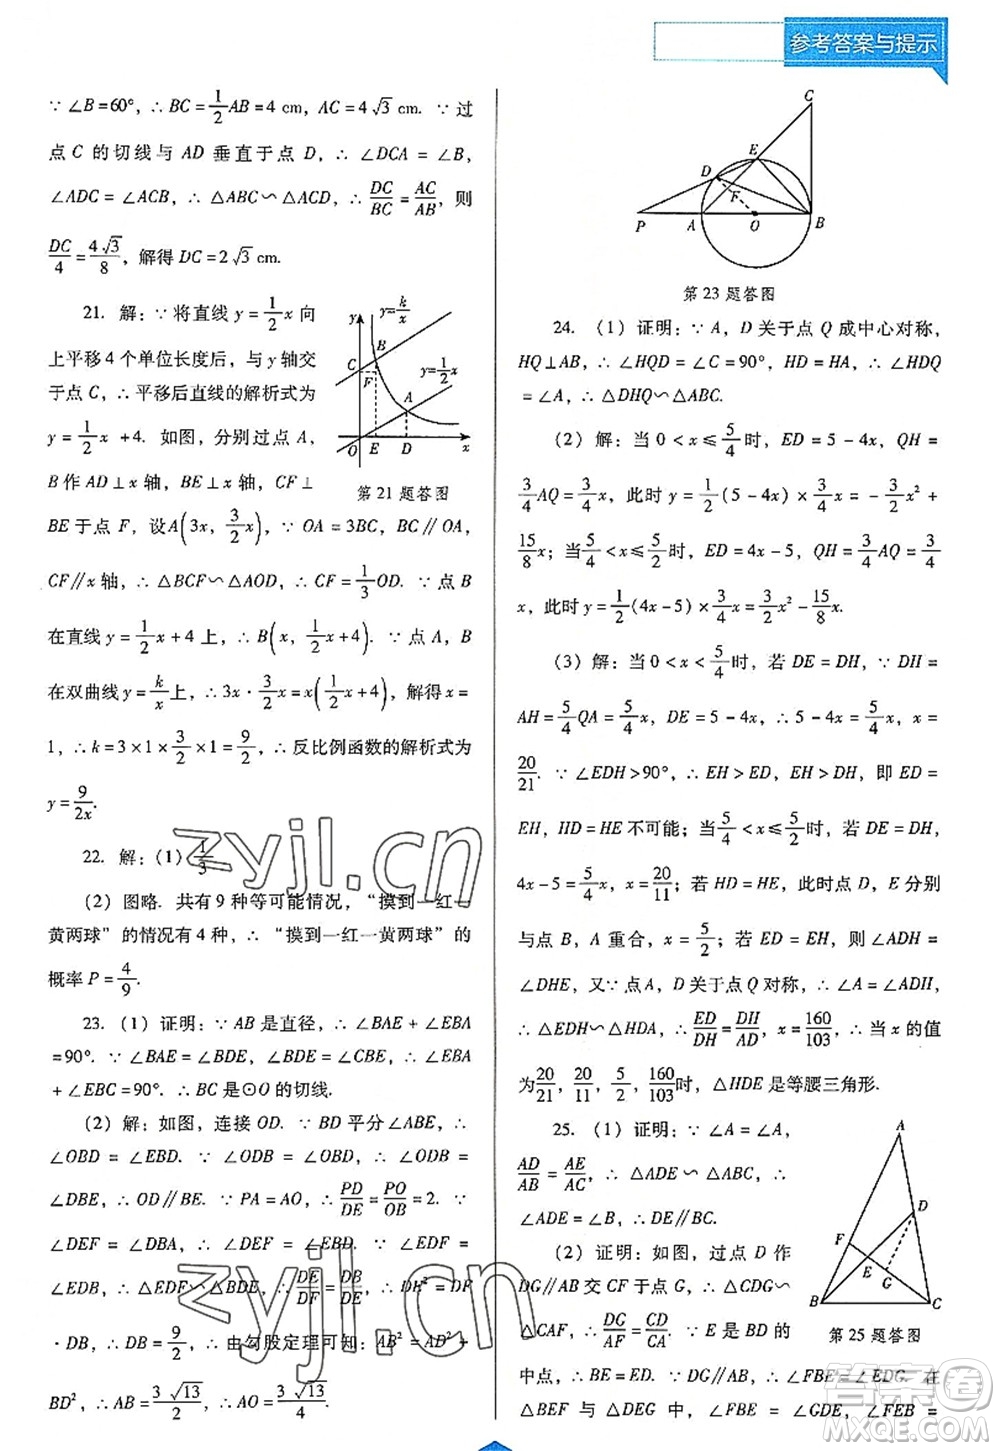 参考答案与提示
∵ ∠B=60°, ∴ BC=1/2AB=4 cm, AC=4√3 cm. ∵ 过
点 C 的切线与 AD 垂直于点 D, ∴ ∠DCA = ∠B,
∠ADC = ∠ACB, ∴ △ABC∽△ACD, ∴ DC/BC = AC/AB, 则
DC/4 = 4√3/8, 解得 DC=2√3 cm.
21. 解: ∵ 将直线 y=1/2x 向
上平移 4 个单位长度后, 与 y 轴交
于点 C, ∴ 平移后直线的解析式为
y=1/2x+4. 如图, 分别过点 A,
B 作 AD⊥x 轴, BE⊥x 轴, CF⊥
BE 于点 F, 设A(3x, 3/2x), ∵ OA=3BC, BC∥OA,
CF∥x 轴, ∴ △BCF∽△AOD, ∴ CF=1/3OD. ∵ 点 B
在直线 y=1/2x+4 上, ∴ B(x, 1/2x+4). ∵ 点 A, B
在双曲线 y=k/x上, ∴ 3x·3/2x=x(1/2x+4), 解得 x=
1, ∴ k=3×1×3/2×1=9/2, ∴ 反比例函数的解析式为
y=9/2x.
y=k/x
y
B
C
F
y=1/2x
A
O
E
D
x
第 21 题答图
22. 解: (1) 1/3
(2) 图略. 共有 9 种等可能情况, “摸到一红一
黄两球”的情况有 4 种, ∴ “摸到一红一黄两球”的
概率 P=4/9.
23. (1) 证明: ∵ AB 是直径, ∴ ∠BAE+∠EBA
=90°. ∵ ∠BAE=∠BDE, ∠BDE=∠CBE, ∴ ∠EBA
+∠EBC=90°. ∴ BC 是⊙O 的切线.
(2) 解: 如图, 连接 OD. ∵ BD 平分∠ABE, ∴
∠OBD = ∠EBD. ∵ ∠ODB = ∠OBD, ∴ ∠ODB =
∠DBE, ∴ OD∥BE. ∵ PA=AO, ∴ PD/DE=PO/OB=2. ∵
∠DEF = ∠DBA, ∴ ∠DEF = ∠EBD. ∵ ∠EDF =
∠EDB, ∴ △EDF∽△BDE, ∴ DE/DF=DB/DE, ∴ DE²=DF
·DB, ∴ DB=9/2, ∴ 由勾股定理可知: AB²=AD²+
BD², ∴ AB=3√13/2, ∴ AO=3√13/4.
C
E
D
F
P
A
O
B
第 23 题答图
24. (1) 证明: ∵ A, D 关于点 Q 成中心对称,
HQ⊥AB, ∴ ∠HQD=∠C=90°, HD=HA, ∴ ∠HDQ
=∠A, ∴ △DHQ∽△ABC.
(2) 解: 当 0<x≤5/4时, ED=5-4x, QH=
3/4AQ=3/4x, 此时 y=1/2(5-4x)×3/4x=-3/2x²+
15/8x; 当5/4<x≤5/2时, ED=4x-5, QH=3/4AQ=3/4
x, 此时 y=1/2(4x-5)×3/4x=3/2x²-15/8x.
(3) 解: 当 0<x<5/4时, 若 DE=DH, ∵ DH=
AH=5/4QA=5/4x, DE=5-4x, ∴ 5-4x=5/4x, x=
20/21. ∵ ∠EDH>90°, ∴ EH>ED, EH>DH, 即 ED=
EH, HD=HE 不可能; 当5/4<x≤5/2时, 若 DE=DH,
4x-5=5/4x, x=20/11; 若 HD=HE, 此时点 E 分别
与点 B, A 重合, x=5/2; 若 ED=EH, 则∠ADH=
∠DHE, 又∵ 点A, D 关于点 Q 对称, ∴ ∠A=∠ADH,
∴ △EDH∽△HDA, ∴ ED/DH=DH/AD, x=160/103, ∴ 当 x 的值
为20/21, 20/11, 5/2, 160/103时, △HDE 是等腰三角形.
25. (1) 证明: ∵ ∠A=∠A,
AD/AB=AE/AC, ∴ △ADE∽△ABC, ∴
∠ADE=∠B, ∴ DE∥BC.
(2) 证明: 如图, 过点 D 作
DG∥AB 交 CF 于点 G, ∴ △CDG∽
△CAF, ∴ DC/AF=CD/CA. ∵ E 是 BD 的
中点, ∴ BE=ED. ∵ DG∥AB, ∴ ∠FBE=∠EDG. 在
△BEF 与 △DEG 中, ∠FBE = ∠GDE, ∠FEB =
A
F
D
E
G
B
C
第 25 题答图
zyjl.cn
zyjl.cn
答案圈